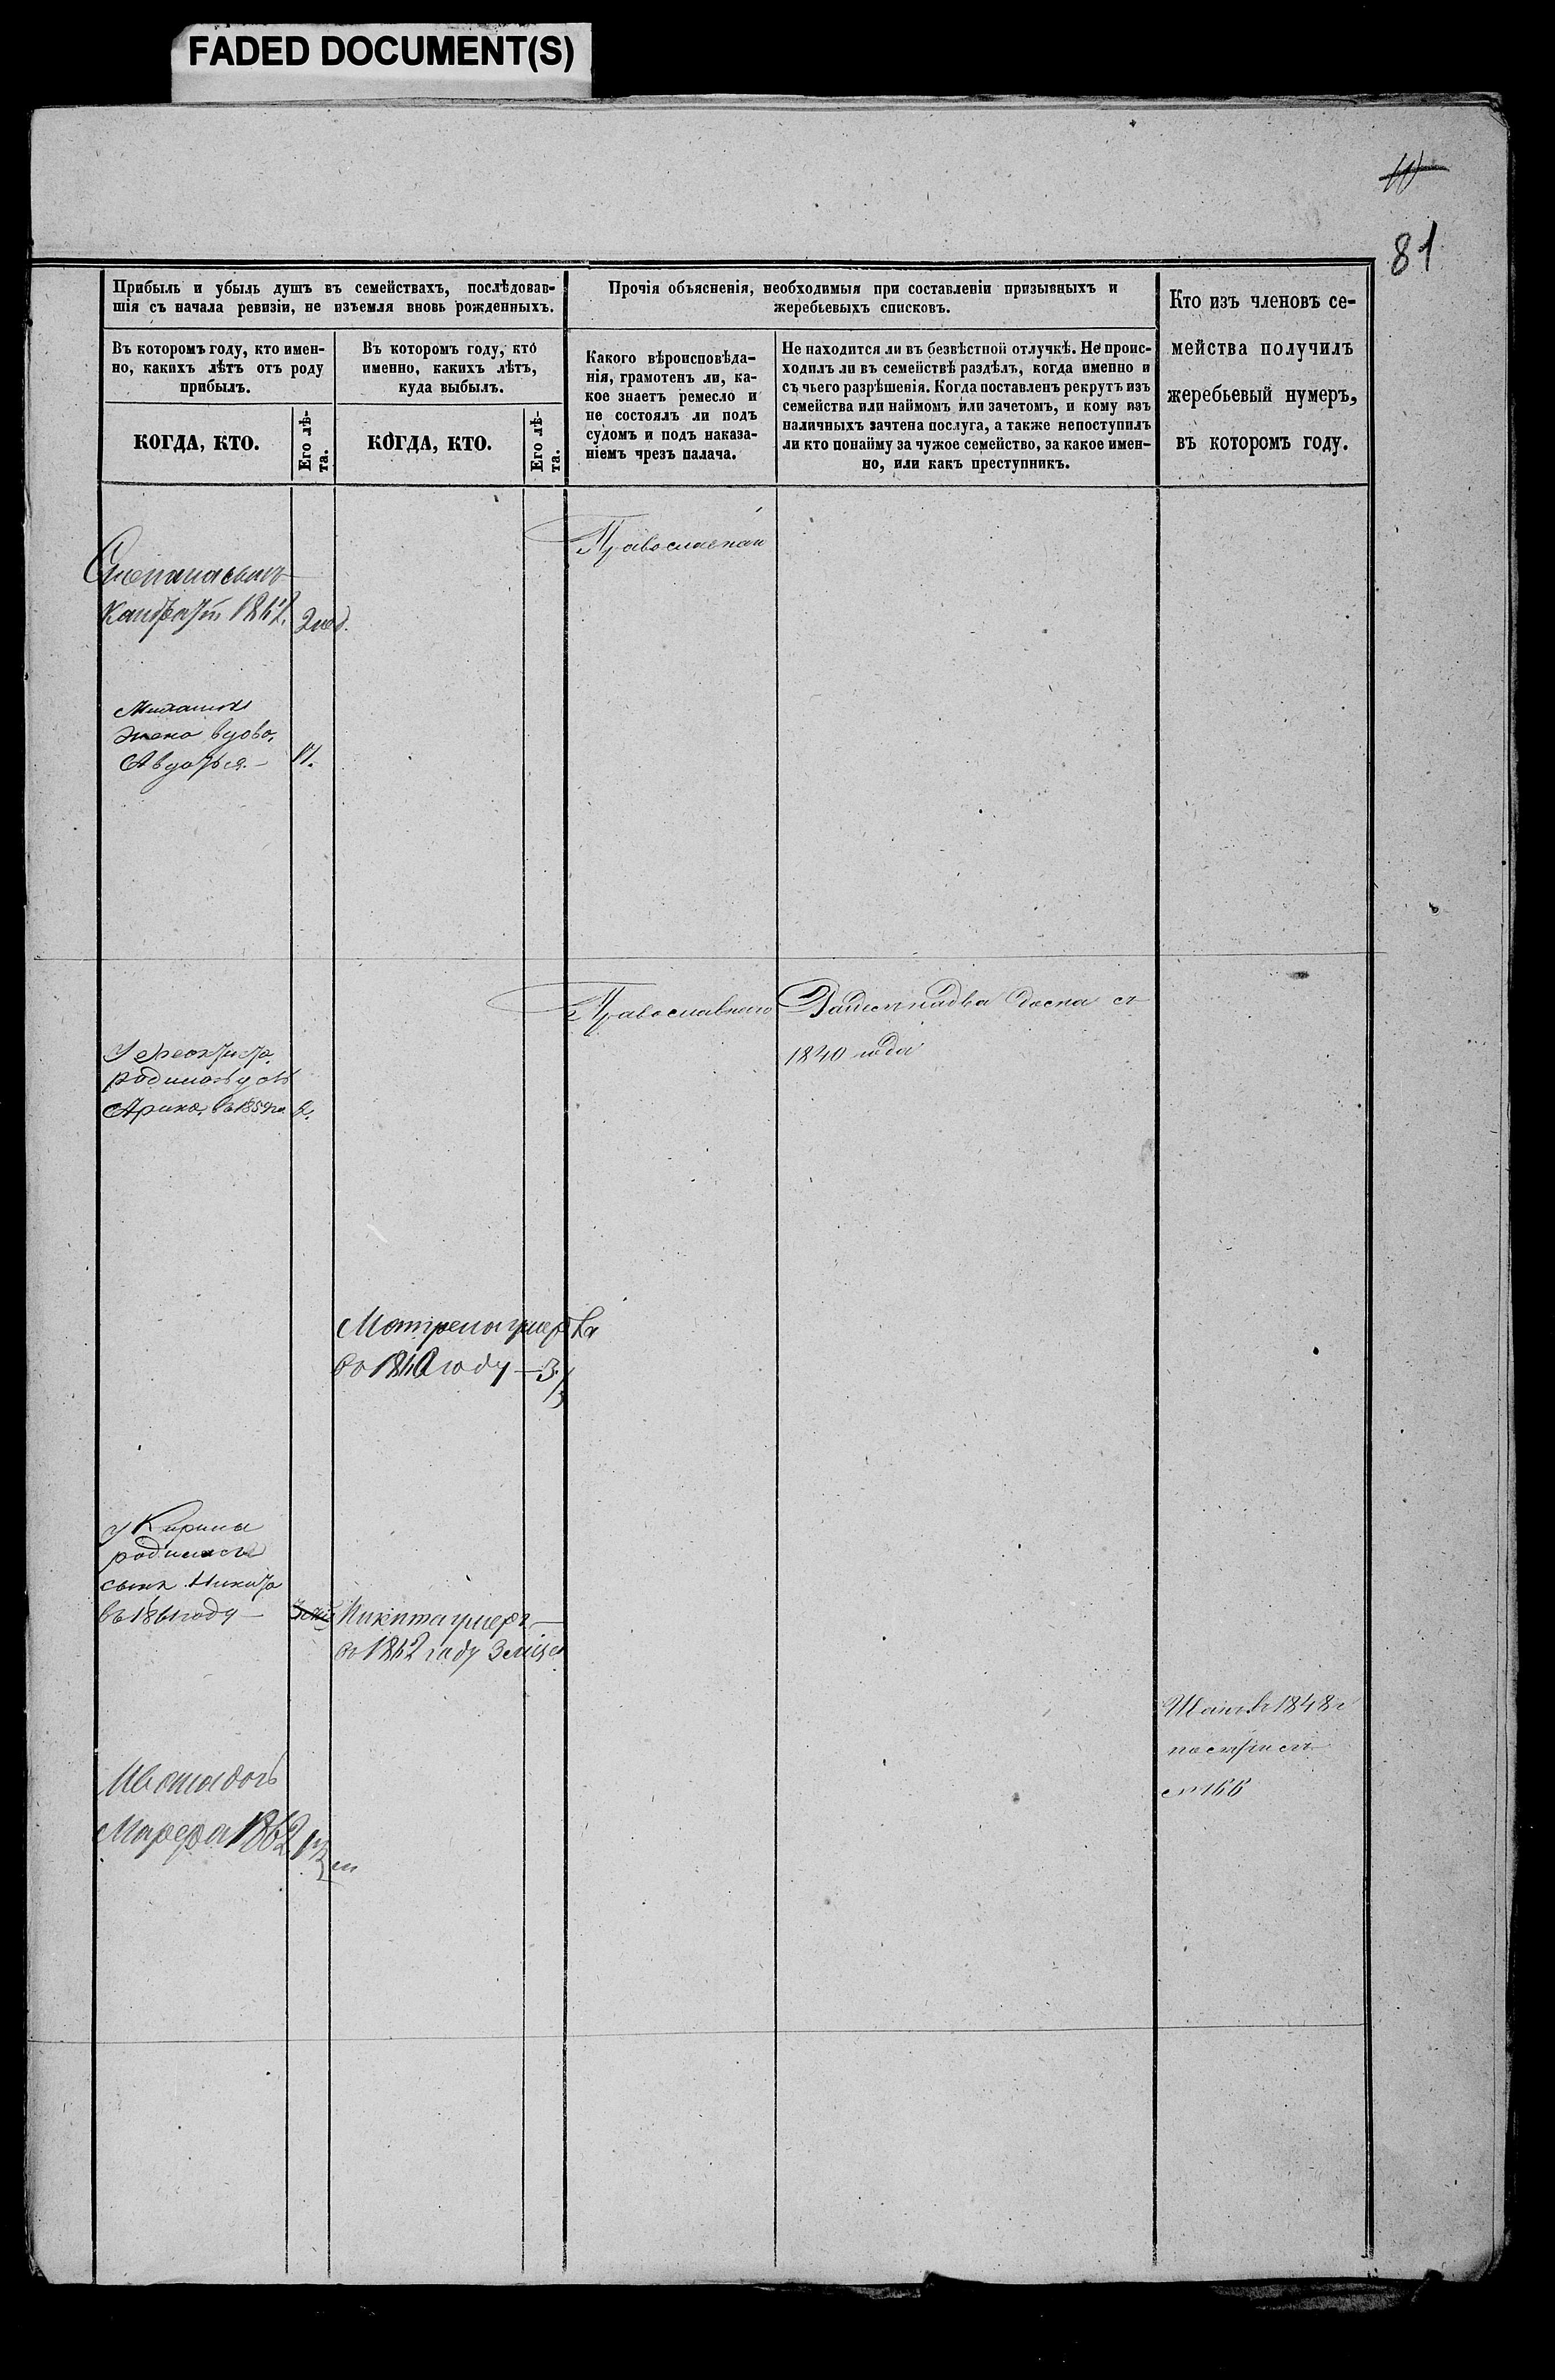 FADED DOCUMENT(S)
10
81
Прибыль и убыль душъ въ семействахъ, послѣдовав-
шія съ начала ревизіи, не изъемля вновь рожденныхъ.
Въ которомъ году, кто имен-
но, какихъ лѣтъ отъ роду
прибылъ.
КОГДА, КТО.
Его лѣ-
та.
Въ которомъ году, кто
именно, какихъ лѣтъ,
куда выбылъ.
КОГДА, КТО.
Его лѣ-
та.
Прочія объясненія, необходимыя при составленіи призывныхъ и
жеребьевыхъ списковъ.
Какого вѣроисповѣда-
нія, грамотенъ ли, ка-
кое знаетъ ремесло и
не состоялъ ли подъ
судомъ и подъ наказа-
ніемъ чрезъ палача.
Не находится ли въ безвѣстной отлучкѣ. Не проис-
ходилъ ли въ семействѣ раздѣлъ, когда именно и
съ чьего разрѣшенія. Когда поставленъ рекрутъ изъ
семейства или наймомъ или зачетомъ, и кому изъ
наличныхъ зачтена послуга, а также непоступилъ
ли кто понайму за чужое семейство, за какое имен-
но, или какъ преступникъ.
Кто изъ членовъ се-
мейства получилъ
жеребьевый нумеръ,
въ которомъ году.
Степана сынъ
1862. 2 нед.
Православнаго
жена вдова
Авдотья
Православнаго
съ
1840 года
родилась дочь
Арина въ 1859 го 2.
Матрена умерла
въ 1860 году — 3
У Кирила
родился
сынъ Никита
въ 1861 году —
Никита умеръ
въ 1862 году 3 мѣся
1848 г
№ 166
Ивана дочь
Марфа 1862